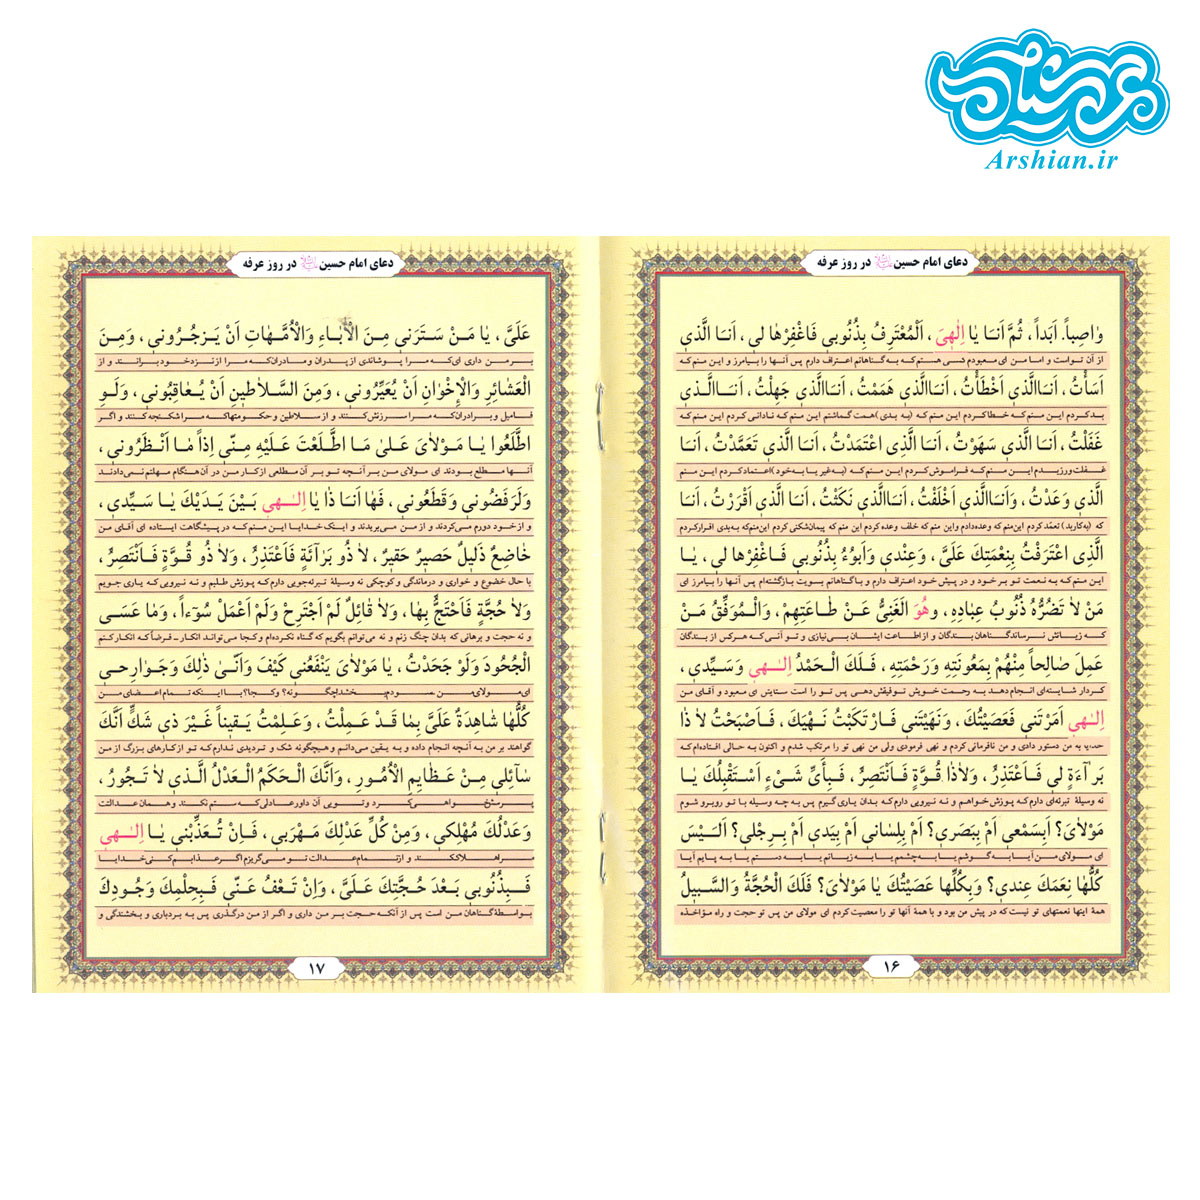 عرشیان
Arshian.ir
دعای امام حسین در روز عرفه
وٰاصِباً. اَبَداً، ثُمَّ اَنـَا يٰا اِلٰهىَ ، اَلْمُعْتَرِفُ بِذُنُوبى فَاغْفِرْهٰا لى ، اَنـَا الَّذى
از آن تواست و اما من ای معبودم کسی هستم که به گناهانم اعتراف دارم پس آنها را بیامرز و این منم که
اَسَأْتُ ، اَنـَاالَّذى اَخْطَأْتُ ، اَنـَاالَّذى هَمَمْتُ ، اَنـَاالَّذى جَهِلْتُ ، اَنـَاالَّـذى
بد کردم این منم که خطا کردم این منم که (به بدی) همت گماشتم این منم که نادانی کردم این منم که
غَفَلْتُ ، اَنـَا الَّذى سَهَوْتُ ، اَنـَا الَّذِى اعْتَمَدْتُ ، اَنـَا الَّذى تَعَمَّدْتُ ، اَنـَا
غفلت ورزیدم این منم که فراموش کردم این منم که (به غیر یا به خود) اعتماد کردم این منم
الَّذى وَعَدْتُ ، وَاَنـَاالَّذى اَخْلَفْتُ ، اَنـَاالَّذى نَكَثْتُ ، اَنـَا الَّذى اَقْرَرْتُ ، اَنـَا
که (به کاربد) تعمّد کردم این منم که وعده دادم واین منم که خلف وعده کردم این منم که پیمان شکنی کردم این منم که به بدی اقرار کردم
الَّذِى اعْتَرَفْتُ بِنِعْمَتِكَ عَلَىَّ ، وَعِنْدى وَاَبُوءُ بِذُنُوبى فَاغْفِرْهٰا لى ، يٰا
این منم که به نعمت تو بر خود و در پیش خود اعتراف دارم و با گناهانم بسویت بازگشته ام پس آنها را بیامرز ای
مَنْ لاٰ تَضُرُّهُ ذُنُوبُ عِبٰادِهِ ، وهُوَ الْغَنِىُّ عَنْ طٰاعَتِهِمْ ، وَالْمُوَفِّقُ مَنْ
که زیانش نرساند گناهان بندگان و از اطاعت ایشان بی نیازی و تو آنی که هرکس از بندگان
عَمِلَ صٰالِحاً مِنْهُمْ بِمَعُونَتِهِ وَرَحْمَتِهِ ، فَـلَكَ الْحَمْدُ اِلـٰهى وَسَيِّدى ،
کردار شایسته ای انجام دهد به رحمت خویش توفیقش دهی پس تو را است ستایش ای معبود و آقای من
اِلـٰهى اَمَرْتَنى فَعَصَيْتُكَ ، وَنَهَيْتَنى فَارْتَكَبْتُ نَهْيَكَ ، فَـاَصْبَحْتُ لاٰ ذٰا
خدایا به من دستور دادی و من نافرمانی کردم و نهی فرمودی ولی من نهی تو را مرتکب شدم و اکنون به حالی افتاده ام که
بَرٰآءَةٍ لى فَـاَعْتَذِرُ ، وَلاٰذٰا قُوَّةٍ فَـاَنْتَصِرُ ، فَبِأَىِّ شَىْءٍ اَسْتَقْبِلُكَ يٰا
نه وسیلهٔ تبرئه ای دارم که پوزش خواهم و نه نیرویی دارم که بدان یاری گیرم پس به چه وسیله با تو روبرو شوم
مَوْلاٰىَ؟ اَبِسَمْعى اَمْ بِبَصَرى؟ اَمْ بِلِسٰانى اَمْ بِيَدى اَمْ بِرِجْلى؟ اَلَـيْسَ
ای مولای من آیا به گوشم یا به چشمم یا به زبانم یا به دستم یا به پایم آیا
كُلُّهٰا نِعَمَكَ عِندى؟ وَبِكُلِّهٰا عَصَيْتُكَ يٰا مَوْلاٰىَ؟ فَلَكَ الْحُجَّةُ وَالسَّبيلُ
همهٔ اینها نعمتهای تو نیست که در پیش من بود و با همهٔ آنها تو را معصیت کردم ای مولای من پس تو حجت و راه مؤاخذه
۱۶
دعای امام حسین در روز عرفه
عَلَىَّ ، يٰا مَـنْ سَـتَرَنى مِـنَ الْاٰبٰـاءِ وَالْاُمَّـهٰاتِ اَنْ يَـزجُـرُونى ، وَمِـنَ
بر من داری ای که مرا پوشاندی از پدران و مادران که مرا از نزد خود برانند و از
الْعَشٰائِرِ وَالْاِخْوٰانِ اَنْ يُعَيِّرُونى ، وَمِنَ السَّـلاٰطينِ اَنْ يُـعٰاقِبُونى ، وَلَـوِ
فامیل و برادران که مرا سرزنش کنند و از سلاطین و حکومتها که مرا شکنجه کنند و اگر
اطَّلَعُوا يٰـا مَـوْلاٰىَ عَـلىٰ مَـا اطَّـلَعْتَ عَـلَيْهِ مِـنّى اِذاً مٰـا اَنْـظَرُونى ،
آنها مطلع بودند ای مولای من بر آنچه تو بر آن مطلعی از کار من در آن هنگام مهلتم نمی دادند
وَلَرَفَضُونى وَقَطَعُونى ، فَهٰا اَنـَا ذٰا يٰا اِلـٰهى بَيْنَ يَـدَيْكَ يٰـا سَـيِّدى ،
و از خود دورم می کردند و از من می بریدند و اینک خدایا این منم که در پیشگاهت ایستاده ای آقای من
خٰاضِعٌ ذَليلٌ حَصيرٌ حَقيرٌ ، لاٰ ذُو بَرٰآئَةٍ فَاَعْتَذِرُ ، وَلاٰ ذُو قُـوَّةٍ فَـاَنْتَصِرُ ،
با حال خضوع و خواری و درماندگی و کوچکی نه وسیلهٔ تبرئه جویی دارم که پوزش طلبم و نه نیرویی که یاری جویم
وَلاٰ حُجَّةٍ فَاَحْتَجُّ بِهٰا ، وَلاٰ قٰائِلٌ لَمْ اَجْتَرِحْ وَلَمْ اَعْمَلْ سُوٓءاً ، وَمٰا عَسَى
و نه حجت و برهانی که بدان چنگ زنم و نه می توانم بگویم که گناه نکرده ام و کجا می تواند انکار - فرضاً که انکار کنم
الْجُحُودَ وَلَوْ جَحَدْتُ ، يٰا مَوْلاٰىَ يَنْفَعُنى كَيْفَ وَاَنّىٰ ذٰلِكَ وَجَوٰارِحى
ای مولای من سودم بخشد! چگونه؟ و کجا؟ با اینکه تمام اعضای من
كُلُّهٰا شٰاهِدَةٌ عَلَىَّ بِمٰا قَدْ عَمِلْتُ ، وَعَـلِمْتُ يَـقيناً غَيْرَ ذى شَكٍّ اَنَّكَ
گواهند بر من به آنچه انجام داده و به یقین می دانم و هیچگونه شک و تردیدی ندارم که تو از کارهای بزرگ از من
سٰآئِلى مِنْ عَظٰايِمِ الْاُمُورِ ، وَاَنَّكَ الْحَكَمُ الْعَدْلُ الَّـذى لاٰ تَـجُورُ ،
پرسش خواهی کرد و تویی آن داور عادلی که ستم نکند و همان عدالتت
وَعَدْلُكَ مُهْلِكى ، وَمِنْ كُلِّ عَدْلِكَ مَهْرَبى ، فَـاِنْ تُـعَذِّبْنى يٰـا اِلـٰهى
مرا هلاک کند و از تمام عدالت تو می گریزم اگر عذابم کنی خدایا
فَـبِذُنُوبى بَـعْدَ حُـجَّتِكَ عَـلَىَّ ، وَاِنْ تَـعْفُ عَـنّى فَـبِحِلْمِكَ وَجُـودِكَ
بواسطهٔ گناهان من است پس از آنکه حجت بر من داری و اگر از من درگذری پس به بردباری و بخشندگی و
۱۷